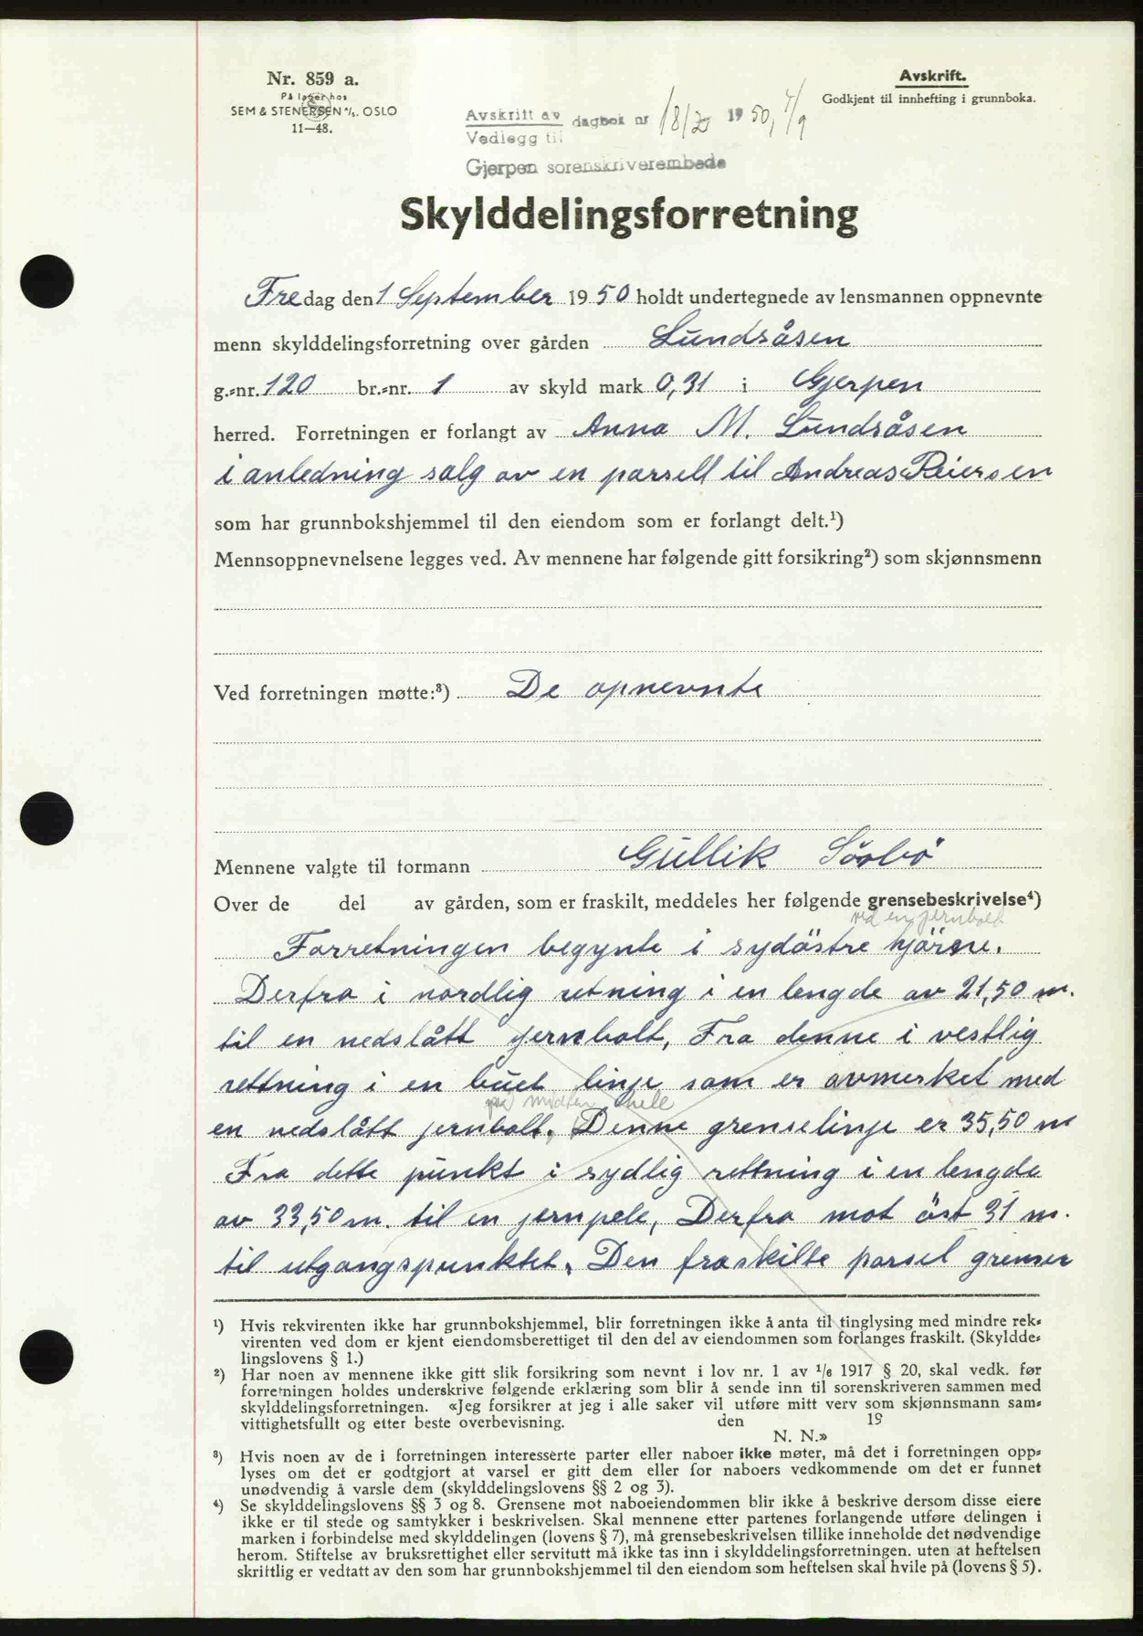 Nr. 859 a.
På lager hos
SEM & STENERSEN A/S. OSLO
11—48.
Avskrift.
Godkjent til innhefting i grunnboka.
Avskrift av dagbok nr 1950, 4/9
Vedlegg til
Gjerpen sorenskriverembede
Skylddelingsforretning
Fredag den 1 September 1950 holdt undertegnede av lensmannen oppnevnte
menn skylddelingsforretning over gården Lundsåsen
g.=nr. 120 br.=nr. 1 av skyld mark 0,31 i Gjerpen
herred. Forretningen er forlangt av Anna M. Lundsåsen
i anledning salg av en parsell til Andreas Reiersen
som har grunnbokshjemmel til den eiendom som er forlangt delt.¹)
Mennsoppnevnelsene legges ved. Av mennene har følgende gitt forsikring²) som skjønnsmenn
Ved forretningen møtte:³) De opnevnte
Mennene valgte til formann Gullik Sörbö
Over de del av gården, som er fraskilt, meddeles her følgende grensebeskrivelse⁴)
ved en jernbolt
Forretningen begynte i sydöstre hjörne.
Derfra i nordlig retning i en lengde av 21,50 m.
til en nedslått jernbolt, Fra denne i vestlig
rettning i en buet linje som er avmerket med
på midten hele
en nedslått jernbolt. Denne grenselinje er 35,50 m
Fra dette punkt i sydlig rettning i en lengde
av 33,50 m. til en jernpele, Derfra mot öst 31 m.
til utgangspunktet. Den fraskilte parsel grenser
¹) Hvis rekvirenten ikke har grunnbokshjemmel, blir forretningen ikke å anta til tinglysing med mindre rek=
virenten ved dom er kjent eiendomsberettiget til den del av eiendommen som forlanges fraskilt. (Skyldde=
lingslovens § 1.)
²) Har noen av mennene ikke gitt slik forsikring som nevnt i lov nr. 1 av 1/6 1917 § 20, skal vedk. før
forretningen holdes underskrive følgende erklæring som blir å sende inn til sorenskriveren sammen med
skylddelingsforretningen. «Jeg forsikrer at jeg i alle saker vil utføre mitt verv som skjønnsmann sam=
vittighetsfullt og etter beste overbevisning. den 19
N. N.»
³) Hvis noen av de i forretningen interesserte parter eller naboer ikke møter, må det i forretningen opp=
lyses om det er godtgjort at varsel er gitt dem eller for naboers vedkommende om det er funnet
unødvendig å varsle dem (skylddelingslovens §§ 2 og 3).
⁴) Se skylddelingslovens §§ 3 og 8. Grensene mot naboeiendommen blir ikke å beskrive dersom disse eiere
ikke er til stede og samtykker i beskrivelsen. Skal mennene etter partenes forlangende utføre delingen i
marken i forbindelse med skylddelingen (lovens § 7), må grensebeskrivelsen tillike inneholde det nødvendige
herom. Stiftelse av bruksrettighet eller servitutt må ikke tas inn i skylddelingsforretningen. uten at heftelsen
skriftlig er vedtatt av den som har grunnbokshjemmel til den eiendom som heftelsen skal hvile på (lovens § 5).